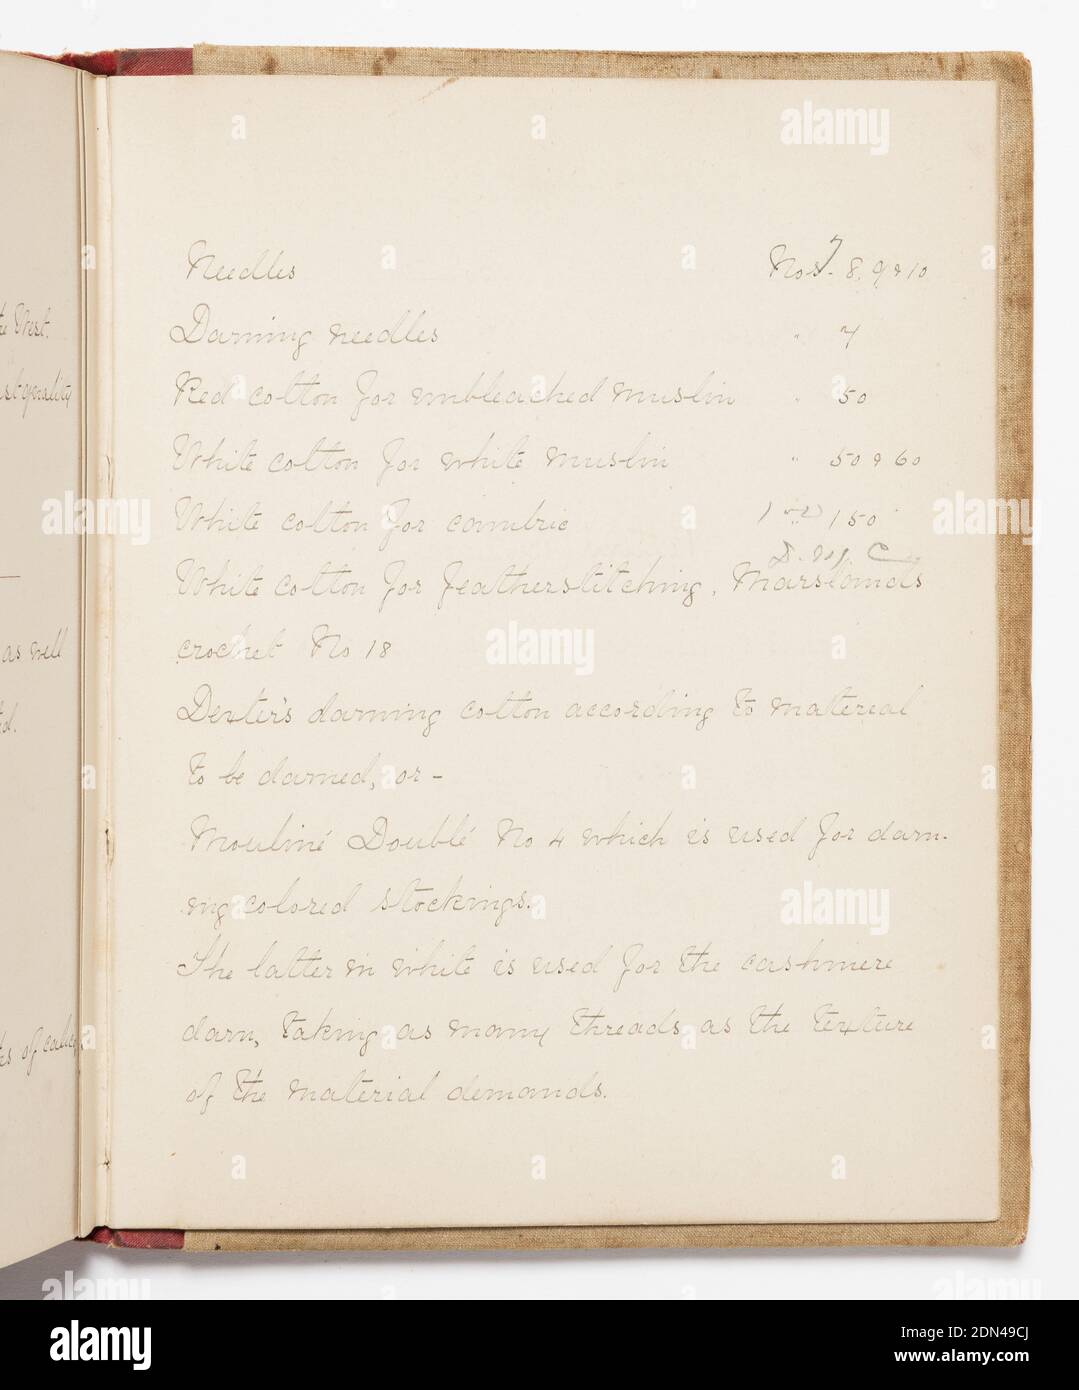 the West.
st quality
as well
of
Needles Nos. 7 8, 9 & 10
Darning needles " 7
Red cotton for unbleached muslin " 50
White cotton for white muslin " 50 & 60
White cotton for cambric 150
D. M. C
White cotton for featherstitching, Marslands
crochet No 18
Dexter's darning cotton according to material
to be darned, or –
Mouliné Doublé No 4 which is used for darn-
ing colored stockings.
The latter in white is used for the cashmere
darn, taking as many threads as the texture
of the material demands.
alamy
Image ID: 2DN49CJ
www.alamy.com